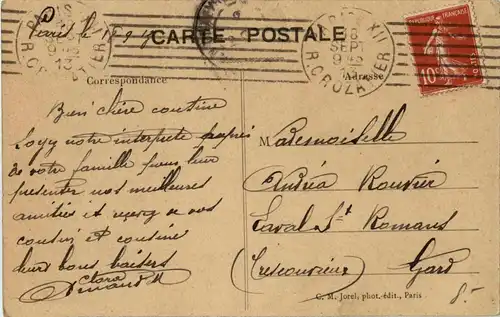 PARIS XII
R. CROZATIER
Paris, le 18.9.13
CARTE POSTALE
PARIS XII
18
SEPT
R. CROZATIER
RÉPUBLIQUE FRANÇAISE
10
Correspondance
Adresse
Bien chère cousine
Soyez notre interprète auprès
de votre famille pour leur
présenter nos meilleures
amitiés et recevez de vos
cousin et cousine
leurs bons baisers
Clara
Armand
Mademoiselle
Andréa Rouvier
Laval St Romans
Gard
C. M. Jorel, phot.-édit., Paris
8.-